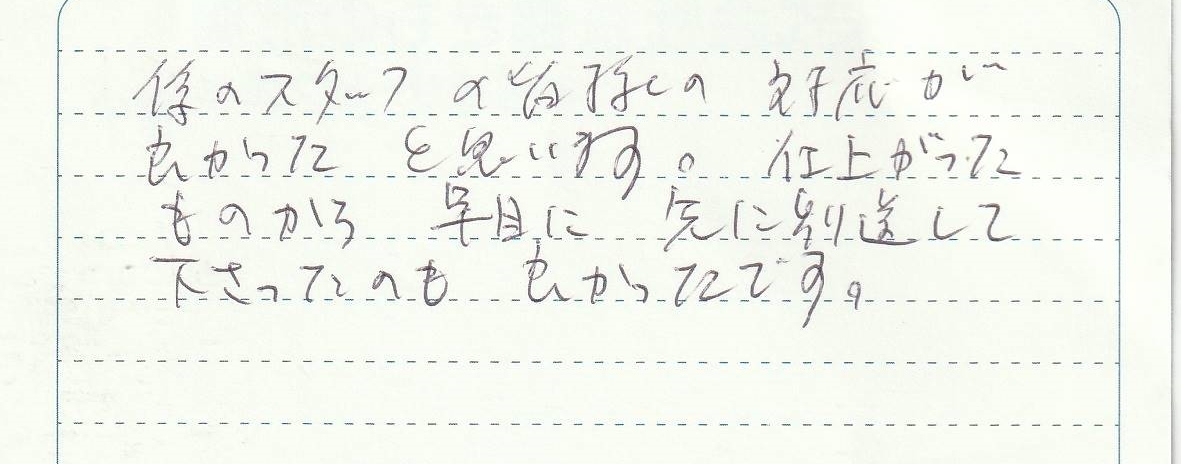 係のスタッフの皆様の対応が
良かったと思います。仕上がった
ものから早目に先に別送して
下さったのも良かったです。